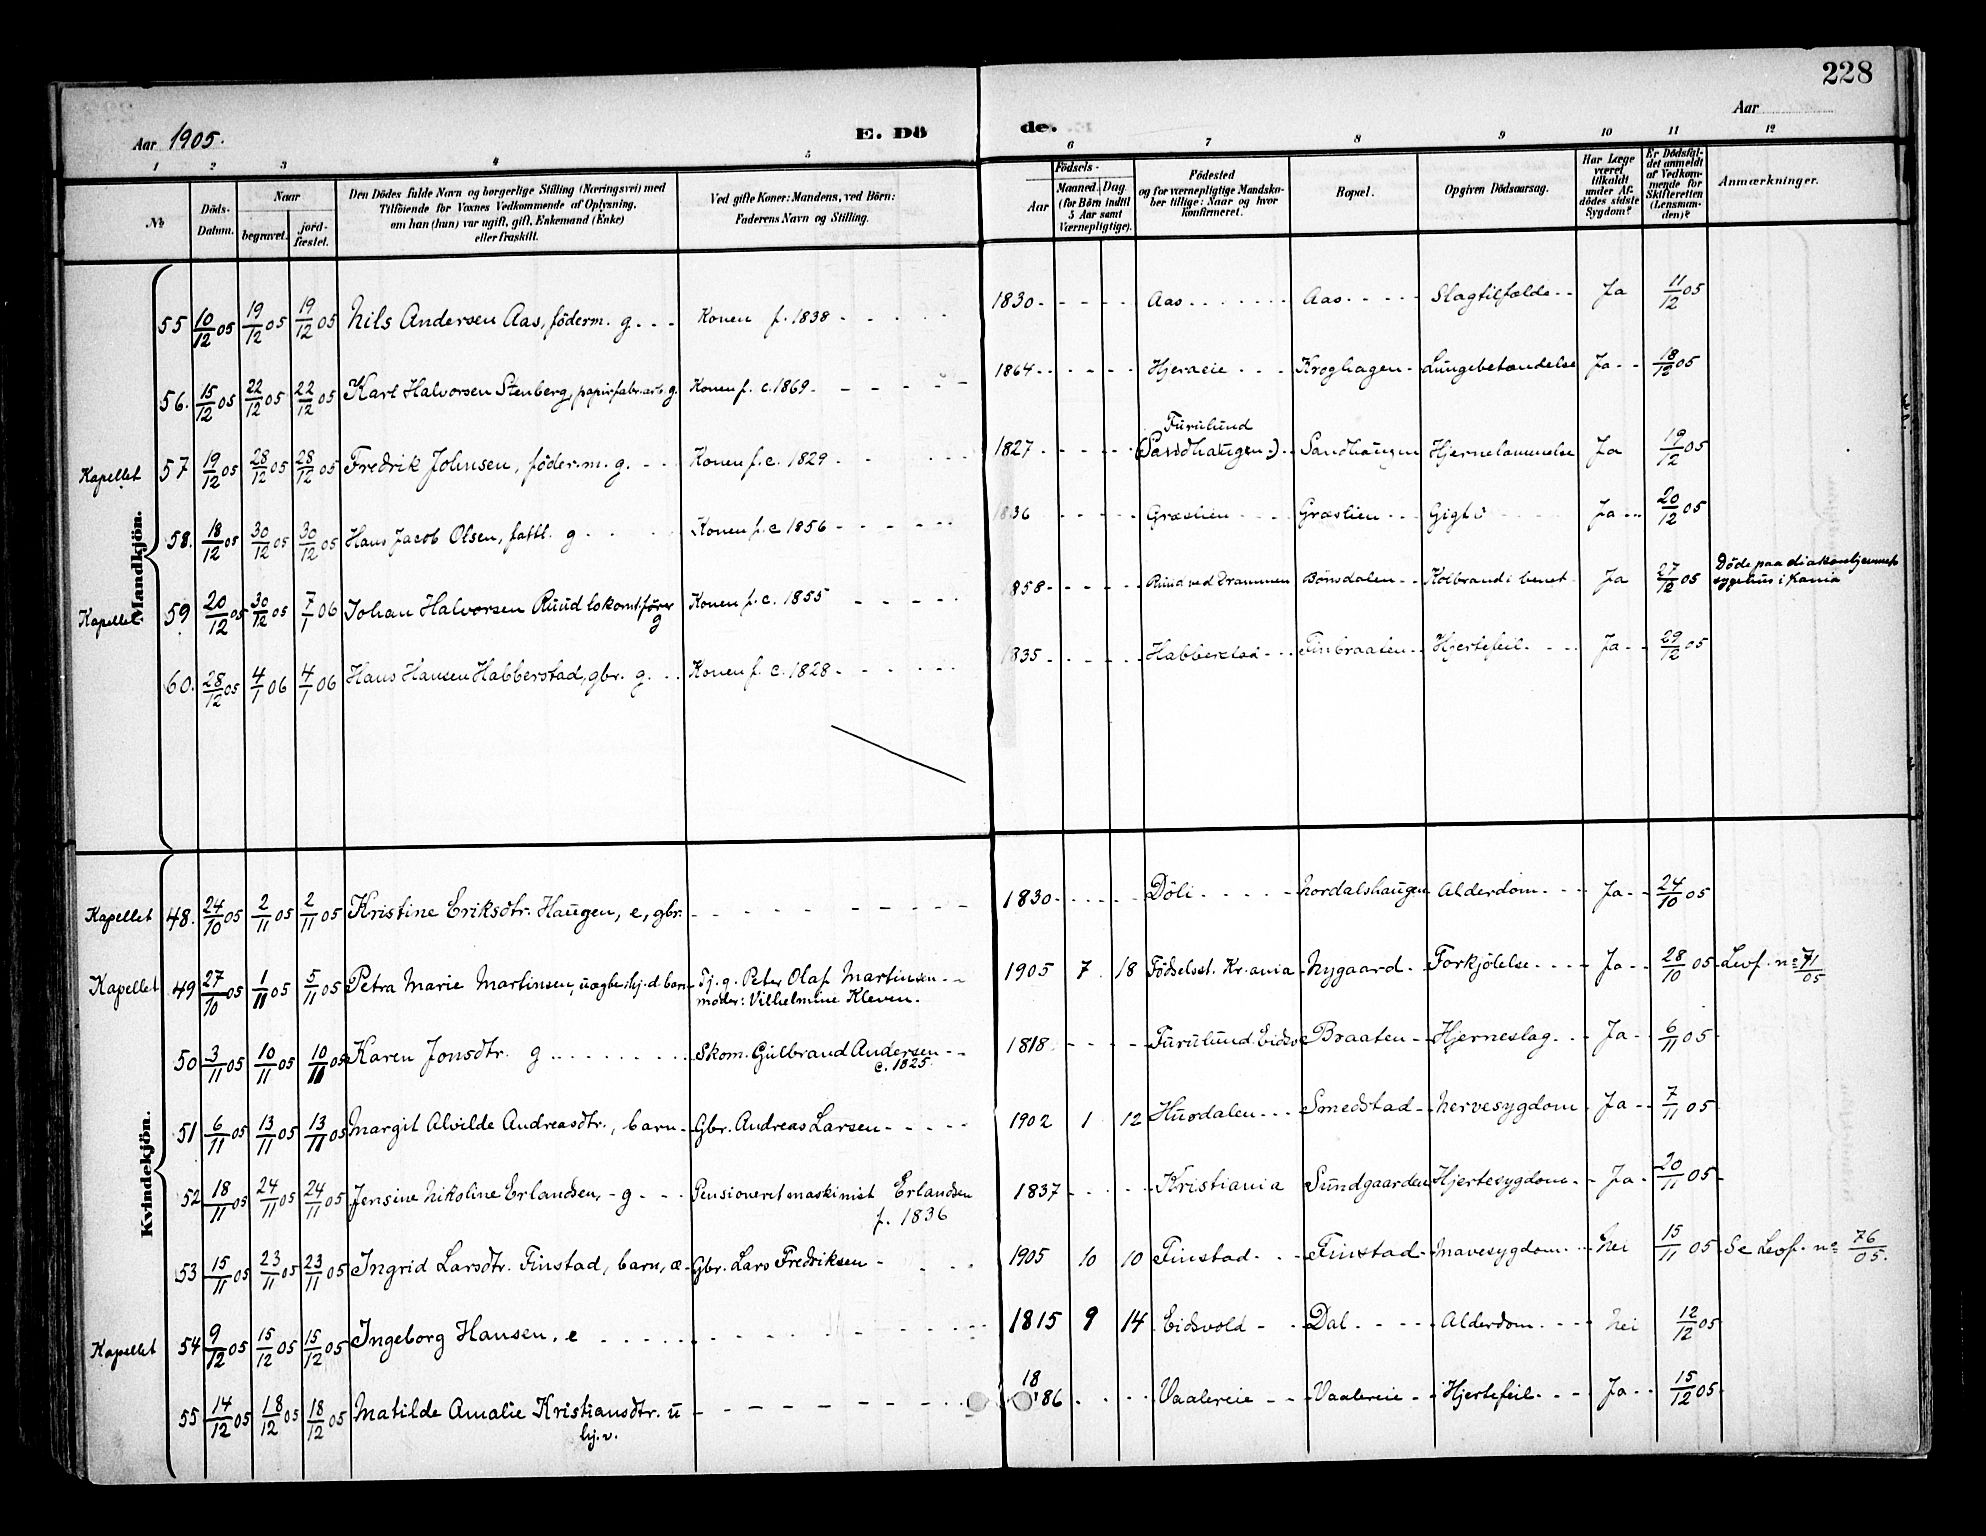 228
Aar 1905.
E. Dö
de.
Aar
1 2 3 4 5 6 7 8 9 10 11 12
№
Döds-Datum.
Naar
begravet.
jord-fæstet.
Den Dödes fulde Navn og borgerlige Stilling (Næringsvei) med
Tilföiende for Voxnes Vedkommende af Oplysning,
om han (hun) var ugift, gift, Enkemand (Enke)
eller fraskilt.
Ved gifte Koner: Mandens, ved Börn:
Faderens Navn og Stilling.
Födsels-
Aar
Maaned. Dag
(for Börn indtil
5 Aar samt
Værnepligtige).
Födested
og for værnepligtige Mandska-
ber tillige: Naar og hvor
konfirmeret.
Bopæl.
Opgiven Dödsaarsag.
Har Læge
været
tilkaldt
under Af-
dödes sidste
Sygdom?
Er Dödsfal-
det anmeldt
af Vedkom-
mende for
Skifteretten
(Lensman-
den)?
Anmærkninger.
Mandkjön.
55 10/12 05 19/12 05 19/12 05 Nils Andersen Aas, föderm. g. Konen f. 1838 1830 Aas Aas Slagtilfælde Ja 11/12 05
56. 15/12 05 22/12 05 22/12 05 Karl Halvorsen Stenberg, papirfabr.arb. g. Konen f. c. 1869 1864 Hjeraeie Kroghagen Lungebetændelse Ja 18/12 05
Kapellet 57 19/12 05 28/12 05 28/12 05 Fredrik Johnsen, föderm. g. Konen f. c. 1829 1827 Furulund
(Sandhaugen) Sandhaugen Hjernelammelse Ja 19/12 05
58. 18/12 05 30/12 05 30/12 05 Hans Jacob Olsen, fattl. g Konen f. c 1856 1836 Græslien Græslien Gigt Ja 20/12 05
Kapellet 59 20/12 05 30/12 05 7/1 06 Johan Halvorsen Ruud lokomt.förer
g Konen f. c. 1855 1858 Ruud ved Drammen Bönsdalen Kolbrand i benet Ja 27/12 05 Döde paa diakonhjemmets
sygehus i Kania
60. 28/12 05 4/1 06 4/1 06 Hans Hansen Habberstad, gbr. g. Konen f. c. 1828 1835 Habberstad Finbraaten Hjertefeil Ja 29/12 05
Kvindekjön.
Kapellet 48. 24/10 05 2/11 05 2/11 05 Kristine Eriksdtr. Haugen, e, gbr. 1830 Döli Nordalshaugen Alderdom Ja 24/10 05
Kapellet 49 27/10 05 1/11 05 5/11 05 Petra Marie Martinsen, uægte hj.d barn Tj. g. Peter Olaf Martinsen
moder: Vilhelmine Kleven. 1905 7 18 Födselsst. Kr.ania Nygaard Forkjölelse Ja 28/10 05 Levf. nº 71/05
50 3/11 05 10/11 05 10/11 05 Karen Jonsdtr. g Skom. Gulbrand Andersen
c. 1825 1818 Furulund Eidsv Braaten Hjerneslag Ja 6/11 05
51 6/11 05 13/11 05 13/11 05 Margit Alvilde Andreasdtr., barn Gbr. Andreas Larsen 1902 1 12 Hurdalen Smedstad Nervesygdom Ja 7/11 05
52 18/11 05 24/11 05 24/11 05 Jensine Nikoline Erlandsen, g Pensioneret maskinist Erlandsen
f. 1836 1837 Kristiania Sundgaarden Hjertesygdom Ja 20/11 05
53 15/11 05 23/11 05 23/11 05 Ingrid Larsdtr. Finstad, barn, æ Gbr. Lars Fredriksen 1905 10 10 Finstad Finstad Mavesygdom Nei 15/11 05 Se Levf. nº 76/05.
Kapellet 54 9/12 05 15/12 05 15/12 05 Ingeborg Hansen, e 1815 9 14 Eidsvold Dal Alderdom Nei 12/12 05
55 14/12 05 18/12 05 18/12 05 Matilde Amalie Kristiansdtr. u
hj. v. 18
86 Vaalereie Vaalereie Hjertefeil Ja 15/12 05